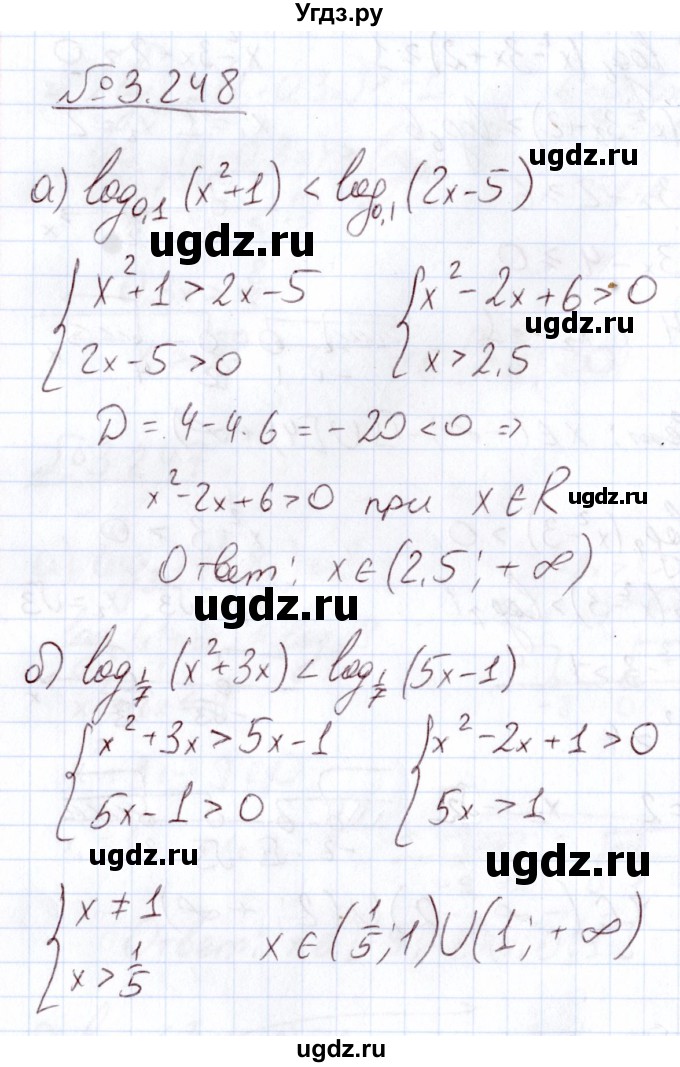 Угдз.ру
№3.248
а) log₀,₁ (x²+1) < log₀,₁ (2x-5)
ugdz.ru
ugdz.ru
{ x²+1 > 2x-5    { x²-2x+6 > 0
ugdz.ru
{ 2x-5 > 0    { x > 2,5
D = 4-4·6 = -20 < 0 =>
x²-2x+6 > 0 при x ∈ R
ugdz.ru
Ответ: x ∈ (2,5; +∞)
ugdz.ru
б) log_{1/7} (x²+3x) < log_{1/7} (5x-1)
{ x²+3x > 5x-1    { x²-2x+1 > 0
{ 5x-1 > 0    { 5x > 1
ugdz.ru
ugdz.ru
{ x ≠ 1
{ x > 1/5    x ∈ (1/5; 1) U (1; +∞)
ugdz.ru